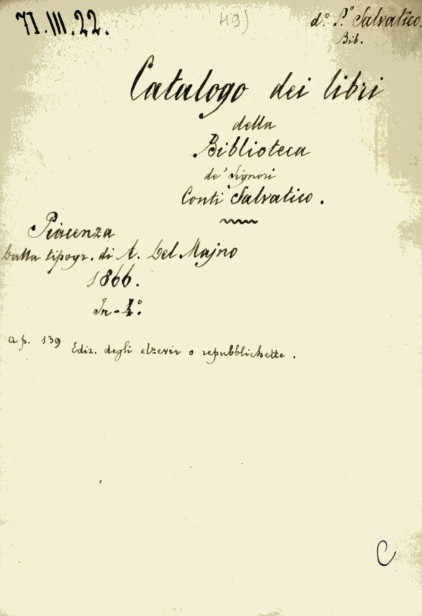 71.III.22.
49)
d.º P.º Salvatico.
Bib.
Catalogo dei libri
della
Biblioteca
de' Signori
Conti Salvatico.
Piacenza
Dalla tipogr. di A. Del Majno
1866.
In-4.º
a p. 139 Ediz. degli elzevir o repubblichette.
C